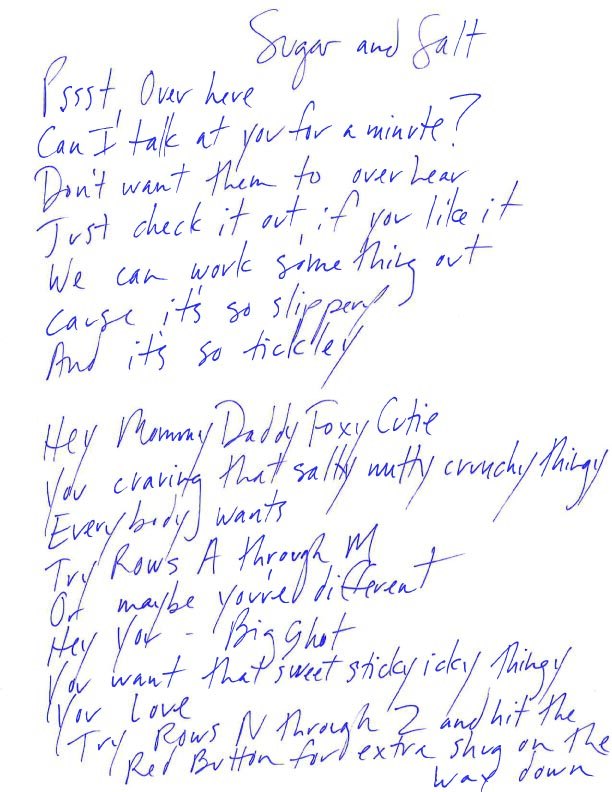 Sugar and Salt
Pssst, Over here
Can I talk at you for a minute?
Don't want them to overhear
Just check it out, if you like it
We can work something out
Cause it's so slippery
And it's so tickley
Hey Mommy Daddy Foxy Cutie
You craving that salty nutty crunchy thingy
Everybody wants
Try Rows A through M
Or maybe you're different
Hey You - Big Shot
You want that sweet sticky icky thingy
You Love
Try Rows N through Z and hit the
Red Button for extra shug on the
way down